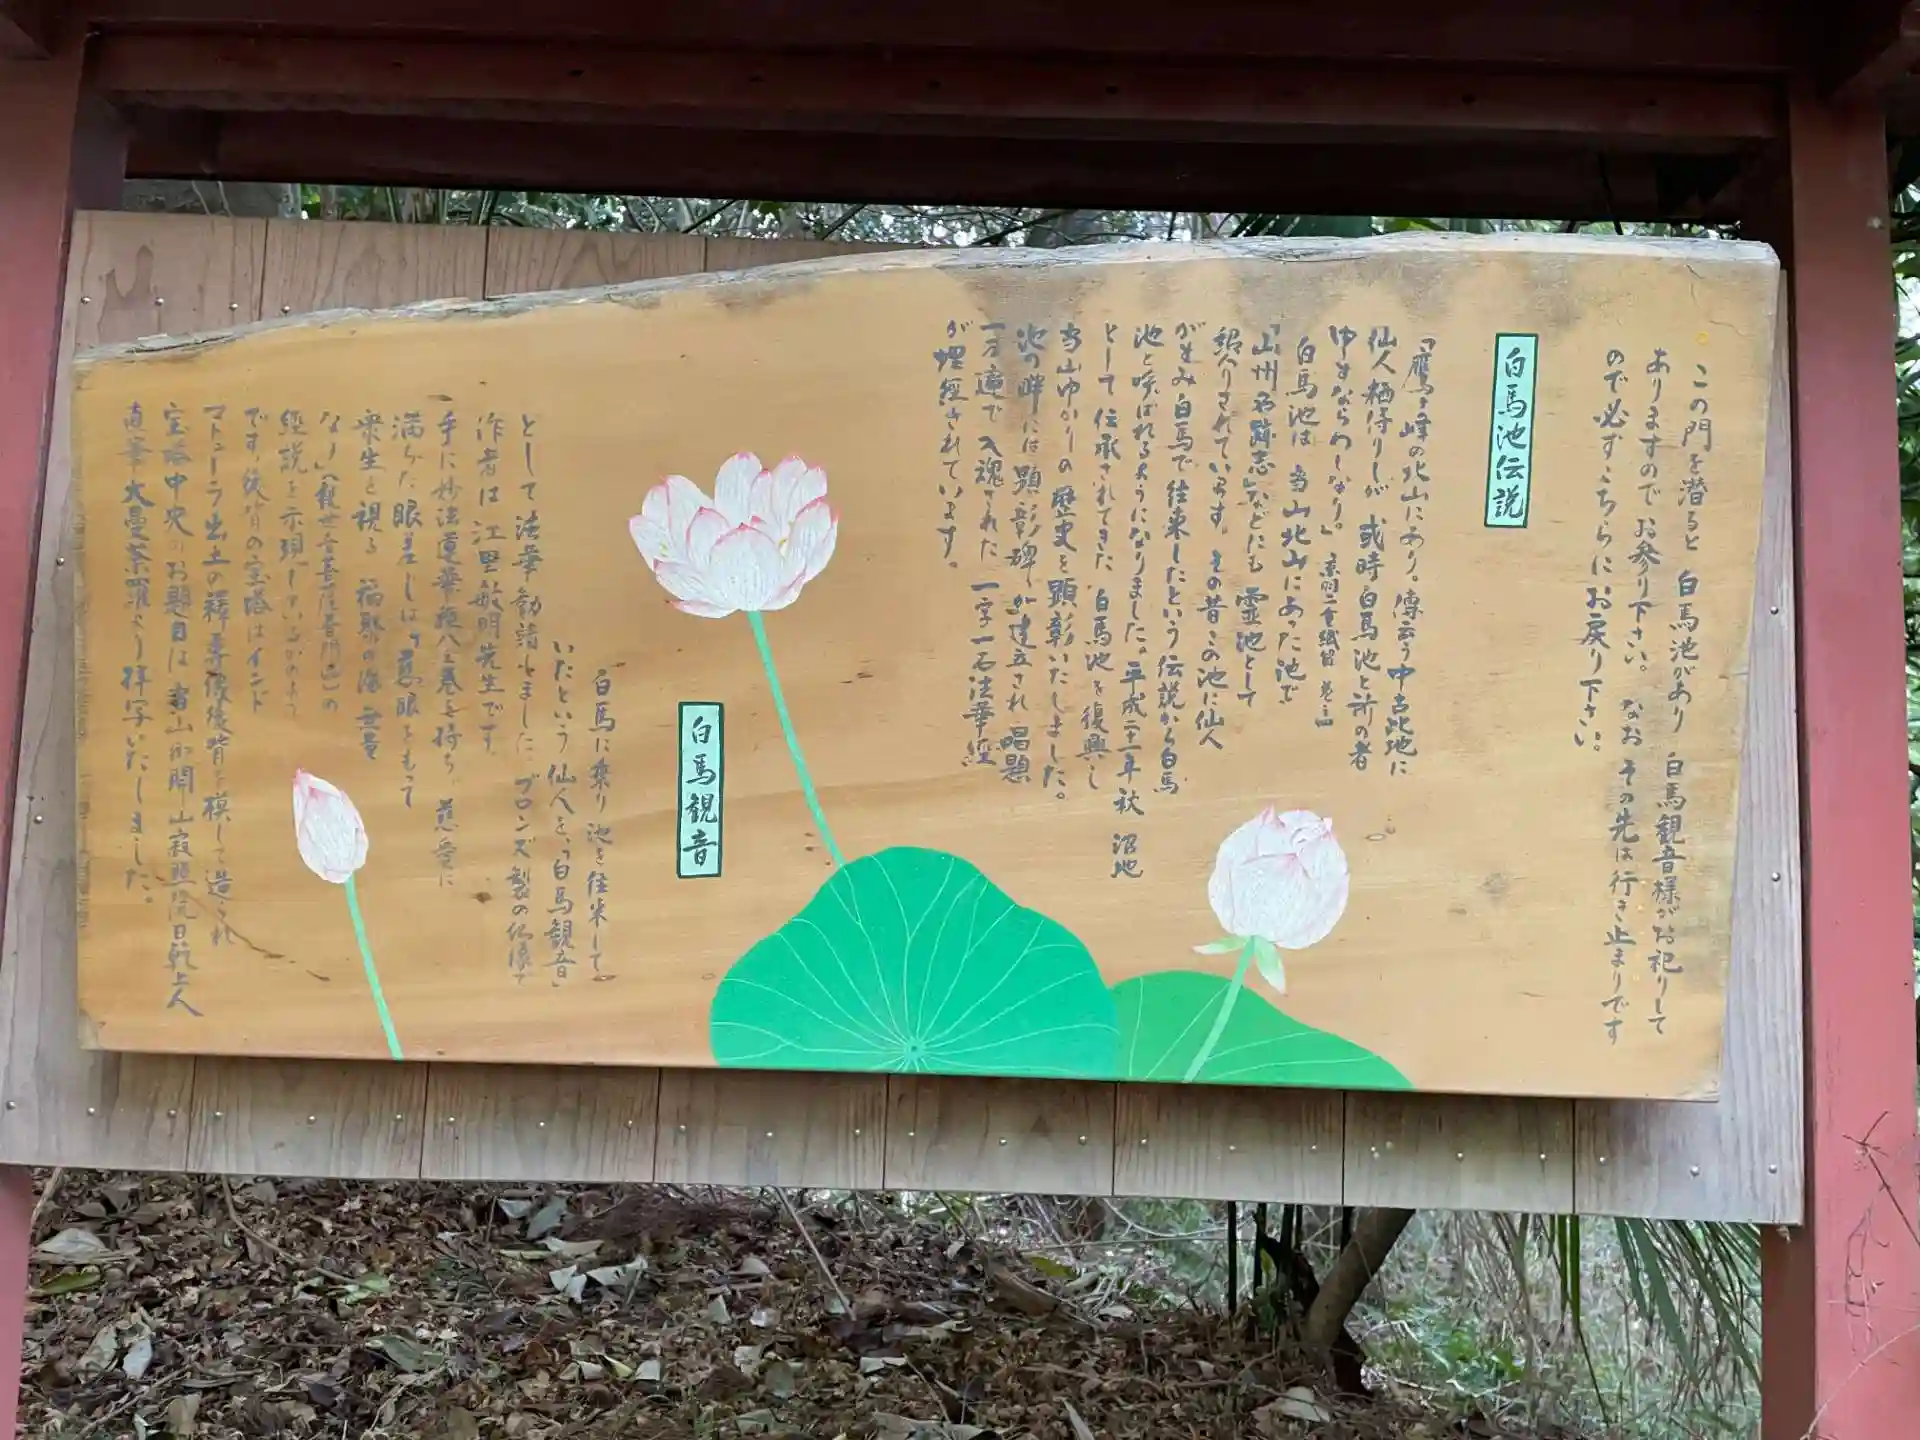 この門を潜ると 白馬池があり 白馬観音様がお祀りして
ありますのでお参り下さい。 なお その先は行き止まりです
ので必ずこちらにお戻り下さい。
白馬池伝説
「鷹ヶ峰の北山にあり。傳云う中古此地に
仙人栖侍りしが 或時白馬池と所の者
ゆきならわしなり。」
白馬池は 当山北山にあった池で
「山州名跡志」などにも 霊池として
紹介されています。その昔この池に仙人
がすみ白馬で往来したという伝説から白馬
池と呼ばれるようになりました。平成二十一年秋 沼地
として伝承されてきた 白馬池を復興し
当山ゆかりの歴史を顕彰いたしました。
池の畔には顕彰碑が建立され 唱題
一万遍で入魂された 一字一石法華経
が埋経されています。
白馬観音
白馬に乗り池を往来して
いたという仙人を、「白馬観音」
として法華勧請しました。ブロンズ製の仏像で
作者は江里敏明先生です。
手に妙法蓮華経八之巻を持ち、慈愛に
満ちた眼差しは「慈眼をもって
衆生を視る 福聚の海 無量
なり」(観世音菩薩普門品)の
経説を示現しているかのよう
です。後背の宝塔はインド
マトゥーラ出土の釋尊像後背を模して造られ
宝塔中央のお題目は 当山の開山寂照院日乾上人
直筆大曼荼羅より拝写いたしました。